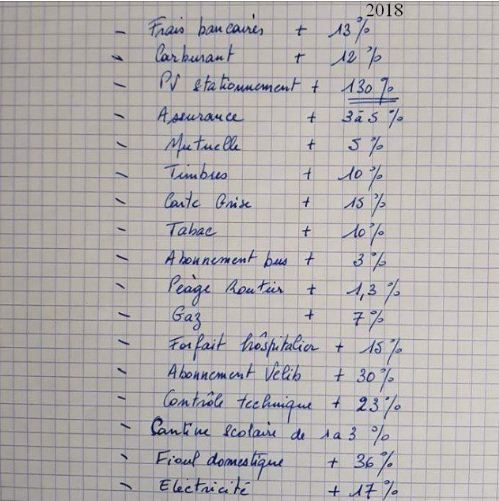 2018
- Frais bancaires + 13%
- Carburant + 12%
- PV stationnement + 130%
- Assurance + 3 à 5 %
- Mutuelle + 5 %
- Timbres + 10%
- Carte Grise + 15%
- Tabac + 10%
- Abonnement bus + 3%
- Péage Routier + 1,3 %
- Gaz + 7%
- Forfait hôspitalier + 15%
- Abonnement Velib + 30%
- Contrôle technique + 23%
- Cantine scolaire de 1 a 3 %
- Fioul domestique + 36%
- Electricité + 17%